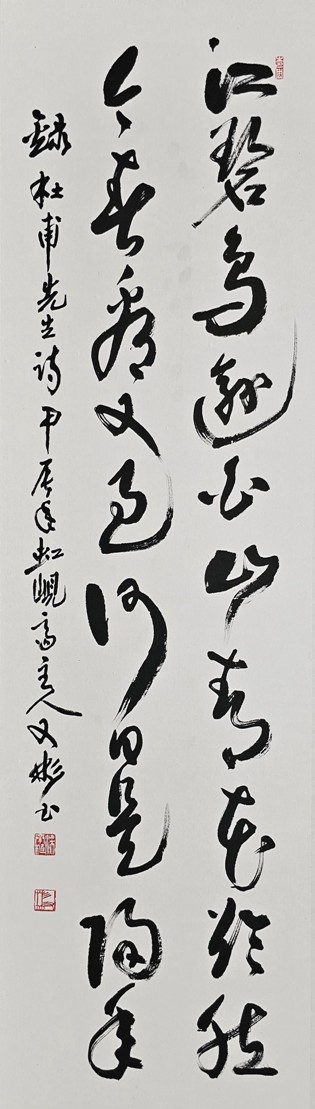 江碧鳥逾白山青花欲然
今春看又過何日是歸年
録杜甫先生诗甲辰年虹峴斋主人彬书